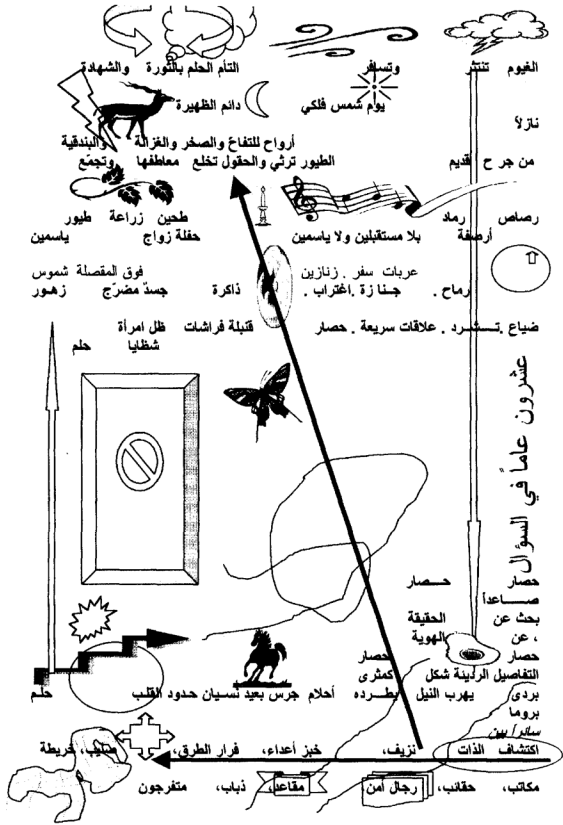 الغيوم تنتثر وتسافر التأم الحلم بالثورة والشهادة
يوم شمس فلكي دائم الظهيرة
نازلاً
أرواح للتفاع والصخر والغزالة والبندقية
من جر ح قديم الطيور ترثي والحقول تخلع معاطفها وتجمّع
رصاص رماد طحين زراعة طيور
أرصفة بلا مستقبلين ولا ياسمين حفلة زواج ياسمين
عربات سفر . زنازين فوق المقصلة شموس
رماح . جنا زة .اغتراب . ذاكرة جسدٌ مضرّج زهور
ضياع .تـشـرد . علاقات سريعة . حصار قنبلة فراشات ظل امرأة
شظايا حلم
عشرون عاماً في السؤال
حصار حـصار
صـاعداً
بحث عن الحقيقة
، عن الهوية
حصار حصار
التفاصيل الرديئة شكل كمثرى
بردى يهرب النيل يطـرده أحلام جرس بعيد نسيان حدود القلب حلم
بروما
سائراً بين
اكتشاف الذات نزيف، خبز أعداء، فرار الطرق، صليب، خريطة
مكاتب، حقائب، رجال أمن، مقاعد، ذباب، متفرجون